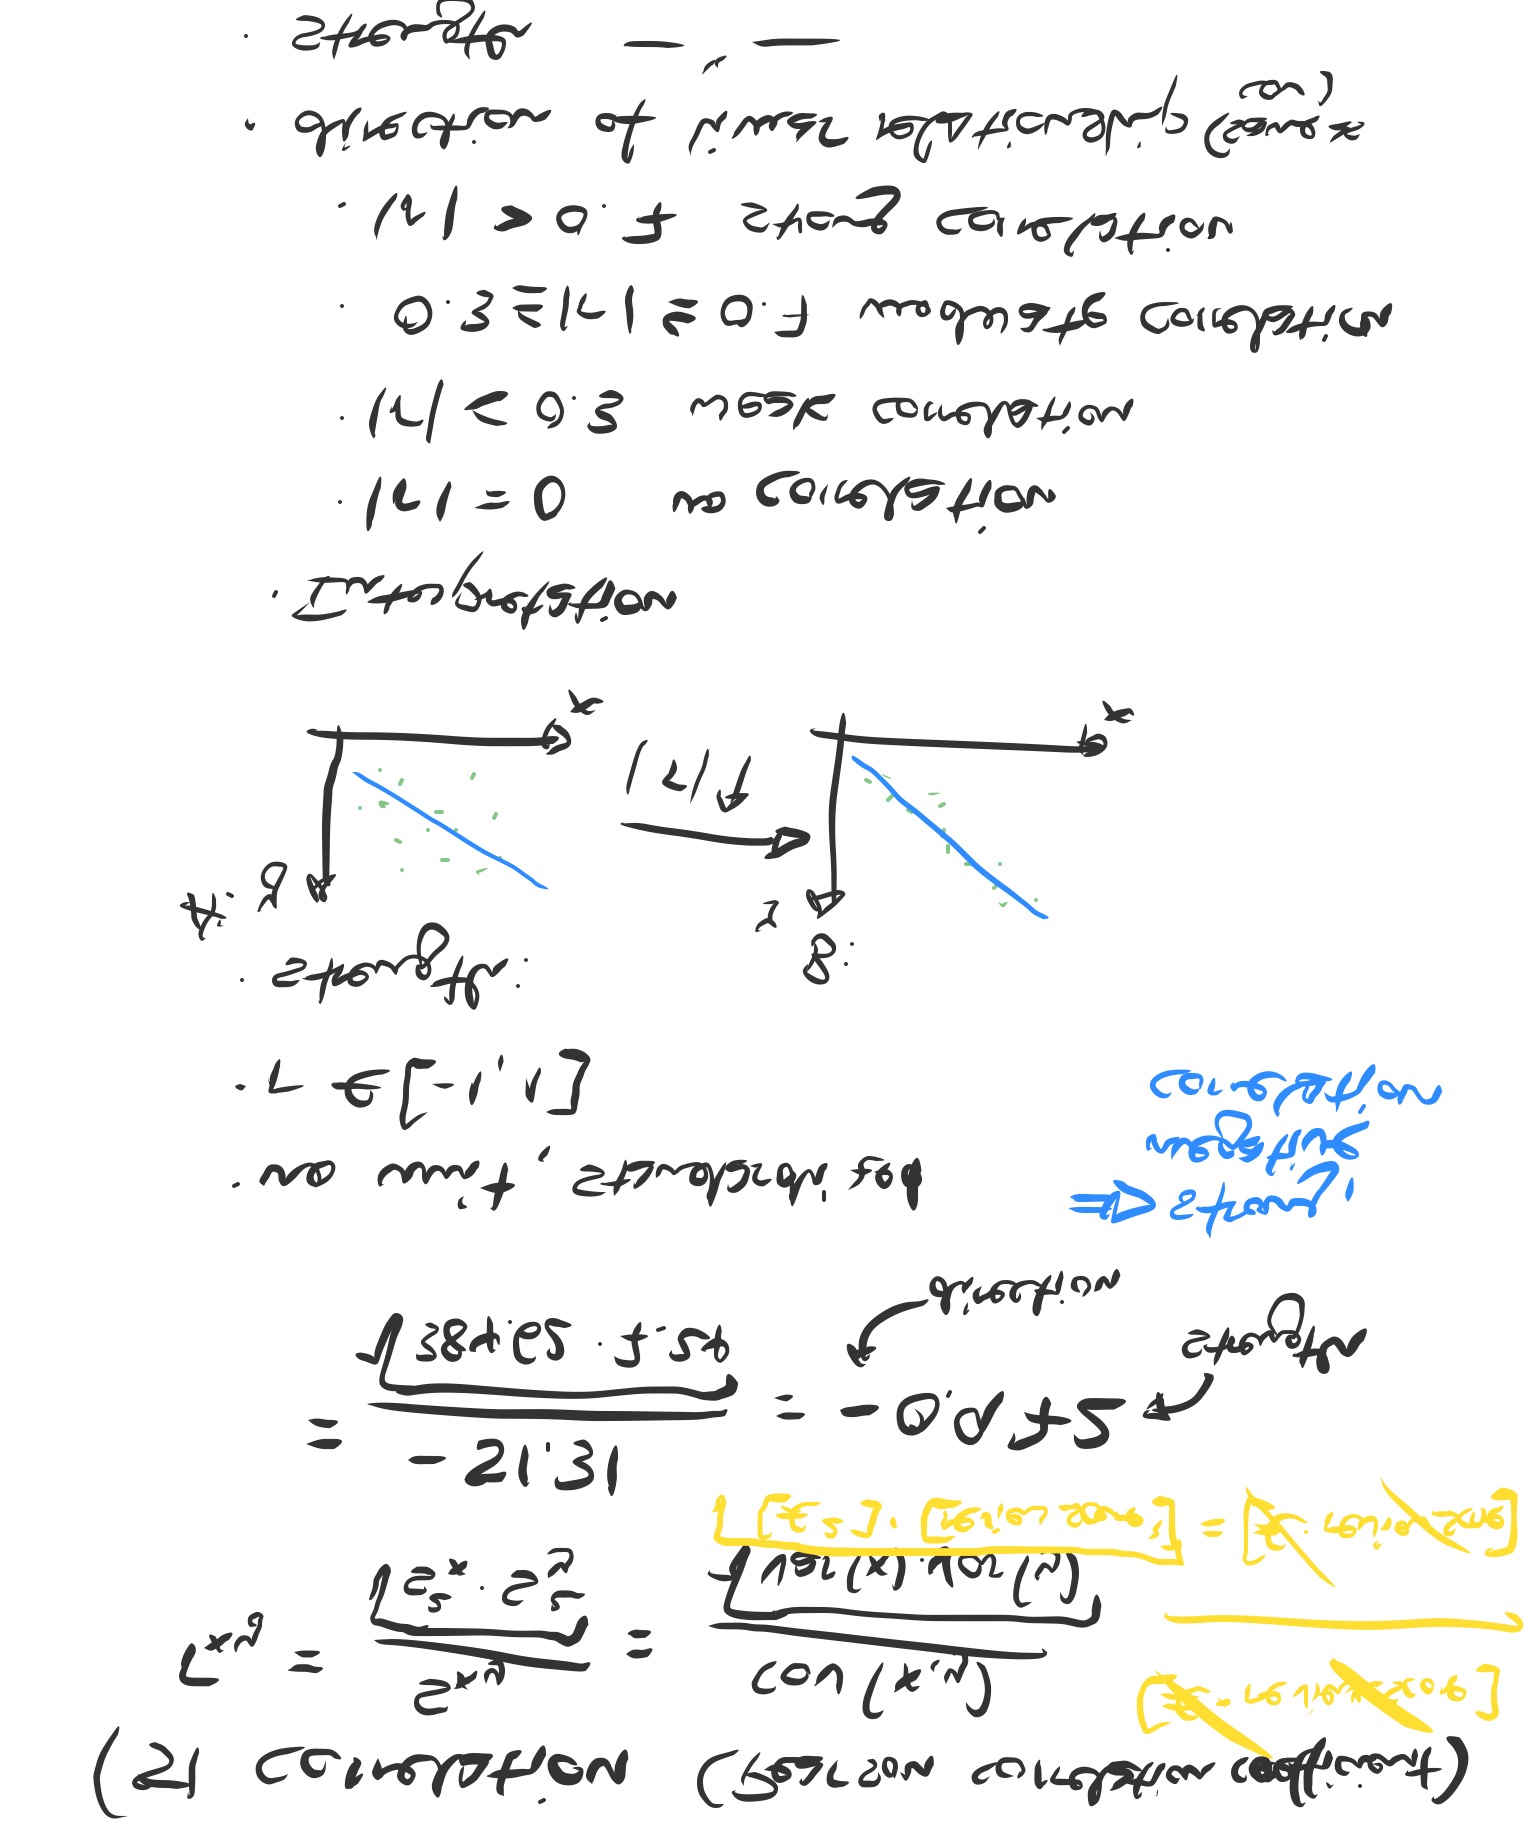 (5) correlation (Pearson correlation coefficient)
r_xy = s_xy / √(s²_x · s²_y) = cov(x,y) / √(var(x) · var(y))
[£ · review score]
√([£²] · [review score²]) = [£ · review score]
= -51.31 / √(384.62 · 7.24) = -0.972
strength
direction
· no unit, standardized
⇒ strong,
negative
correlation
· r ∈ [-1, 1]
· strength:
A. y
x
|r| ↑
B: y
x
· Interpretation
· |r| = 0 no correlation
· |r| < 0.3 weak correlation
· 0.3 ≤ |r| ≤ 0.7 moderate correlation
· |r| > 0.7 strong correlation
· direction of linear relationship (same as
cov)
· strength — " —